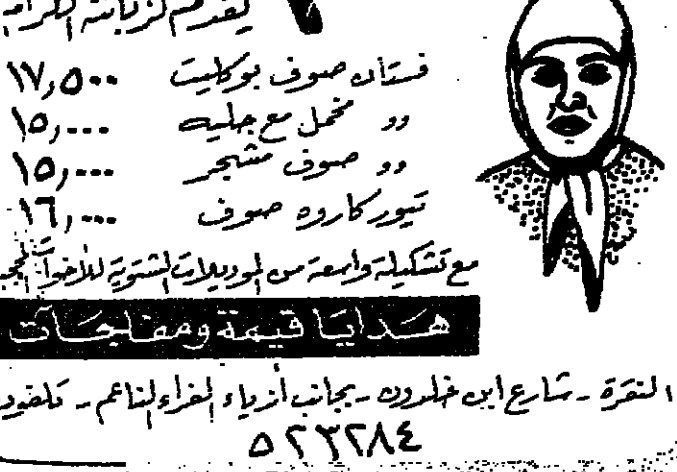 يقدم لزبائنه الكرام
فستان صوف بوكليت ١٧,٥٠٠
،، مخمل مع جليه ١٥,٠٠٠
،، صوف مشجر ١٥,٠٠٠
تيور كاروه صوف ١٦,٠٠٠
مع تشكيلة واسعة من الموديلات الشتوية للأخوات
هدايا قيمة ومفاجآت
النقرة - شارع ابن خلدون - بجانب أزياء الفراء الناعم -
٥٢٣٢٨٤